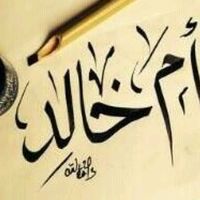 أم خالد